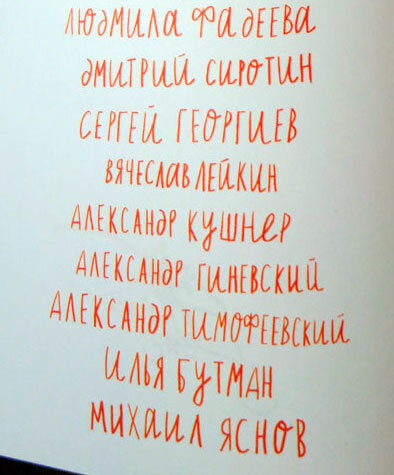 Людмила Фадеева
Дмитрий Сиротин
Сергей Георгиев
Вячеслав Лейкин
Александр Кушнер
Александр Гиневский
Александр Тимофеевский
Илья Бутман
Михаил Яснов